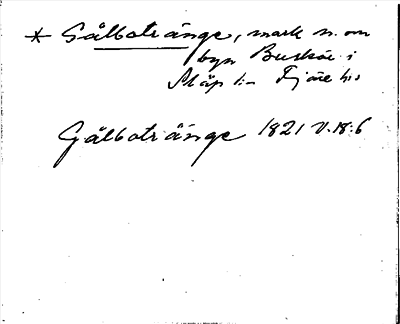 * Gålbotränge, mark n. om
byn Buskåe i
Släp s:n Fjäre hd
Gålbotränge 1821 V. 18:6